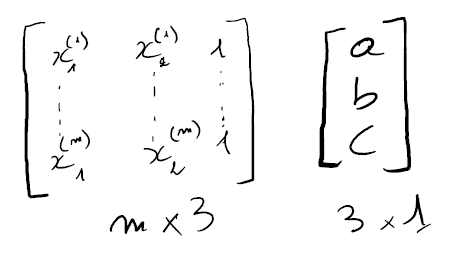 x₁⁽¹⁾ x₂⁽¹⁾ 1 a
b
x₁⁽ᵐ⁾ x₂⁽ᵐ⁾ 1 c
m × 3 3 × 1